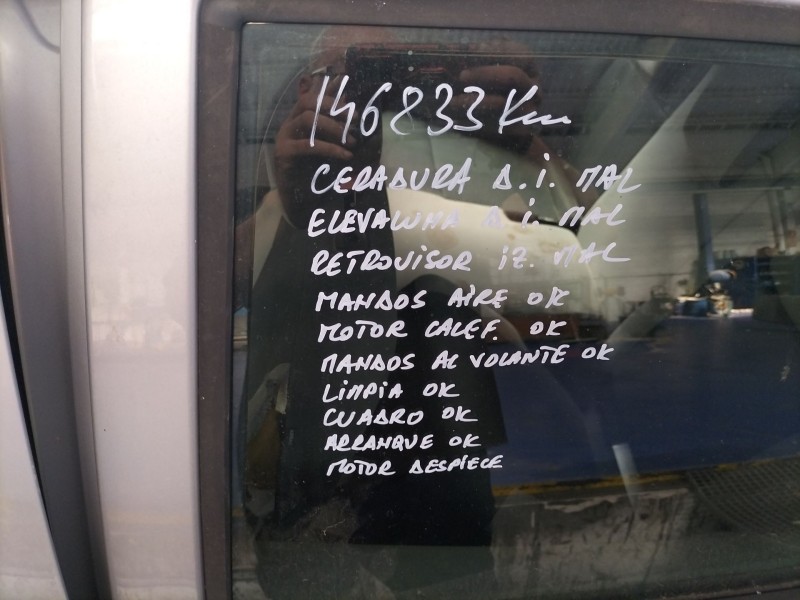 146833 Km
CERADURA D.I. MAL
ELEVALUNA D.I. MAL
RETROVISOR IZ. MAL
MANDOS AIRE OK
MOTOR CALEF. OK
MANDOS AL VOLANTE OK
LIMPIA OK
CUADRO OK
ARRANQUE OK
MOTOR DESPIECE